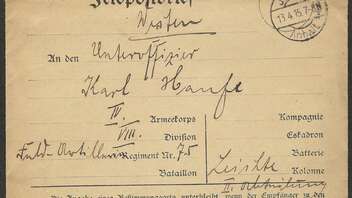 Feldpostbrief
Westen
13.4.15.7-8N
Anhalt
An den Unteroffizier
Karl Haufe
IV. Armeekorps
VIII. Division
Feld-Artillerie Regiment Nr. 75
Bataillon
Kompagnie
Eskadron
Batterie
Leichte Kolonne
II. Abteilung
Die Angabe einer Bestimmungsorts unterbleibt, wenn der Empfänger zu den